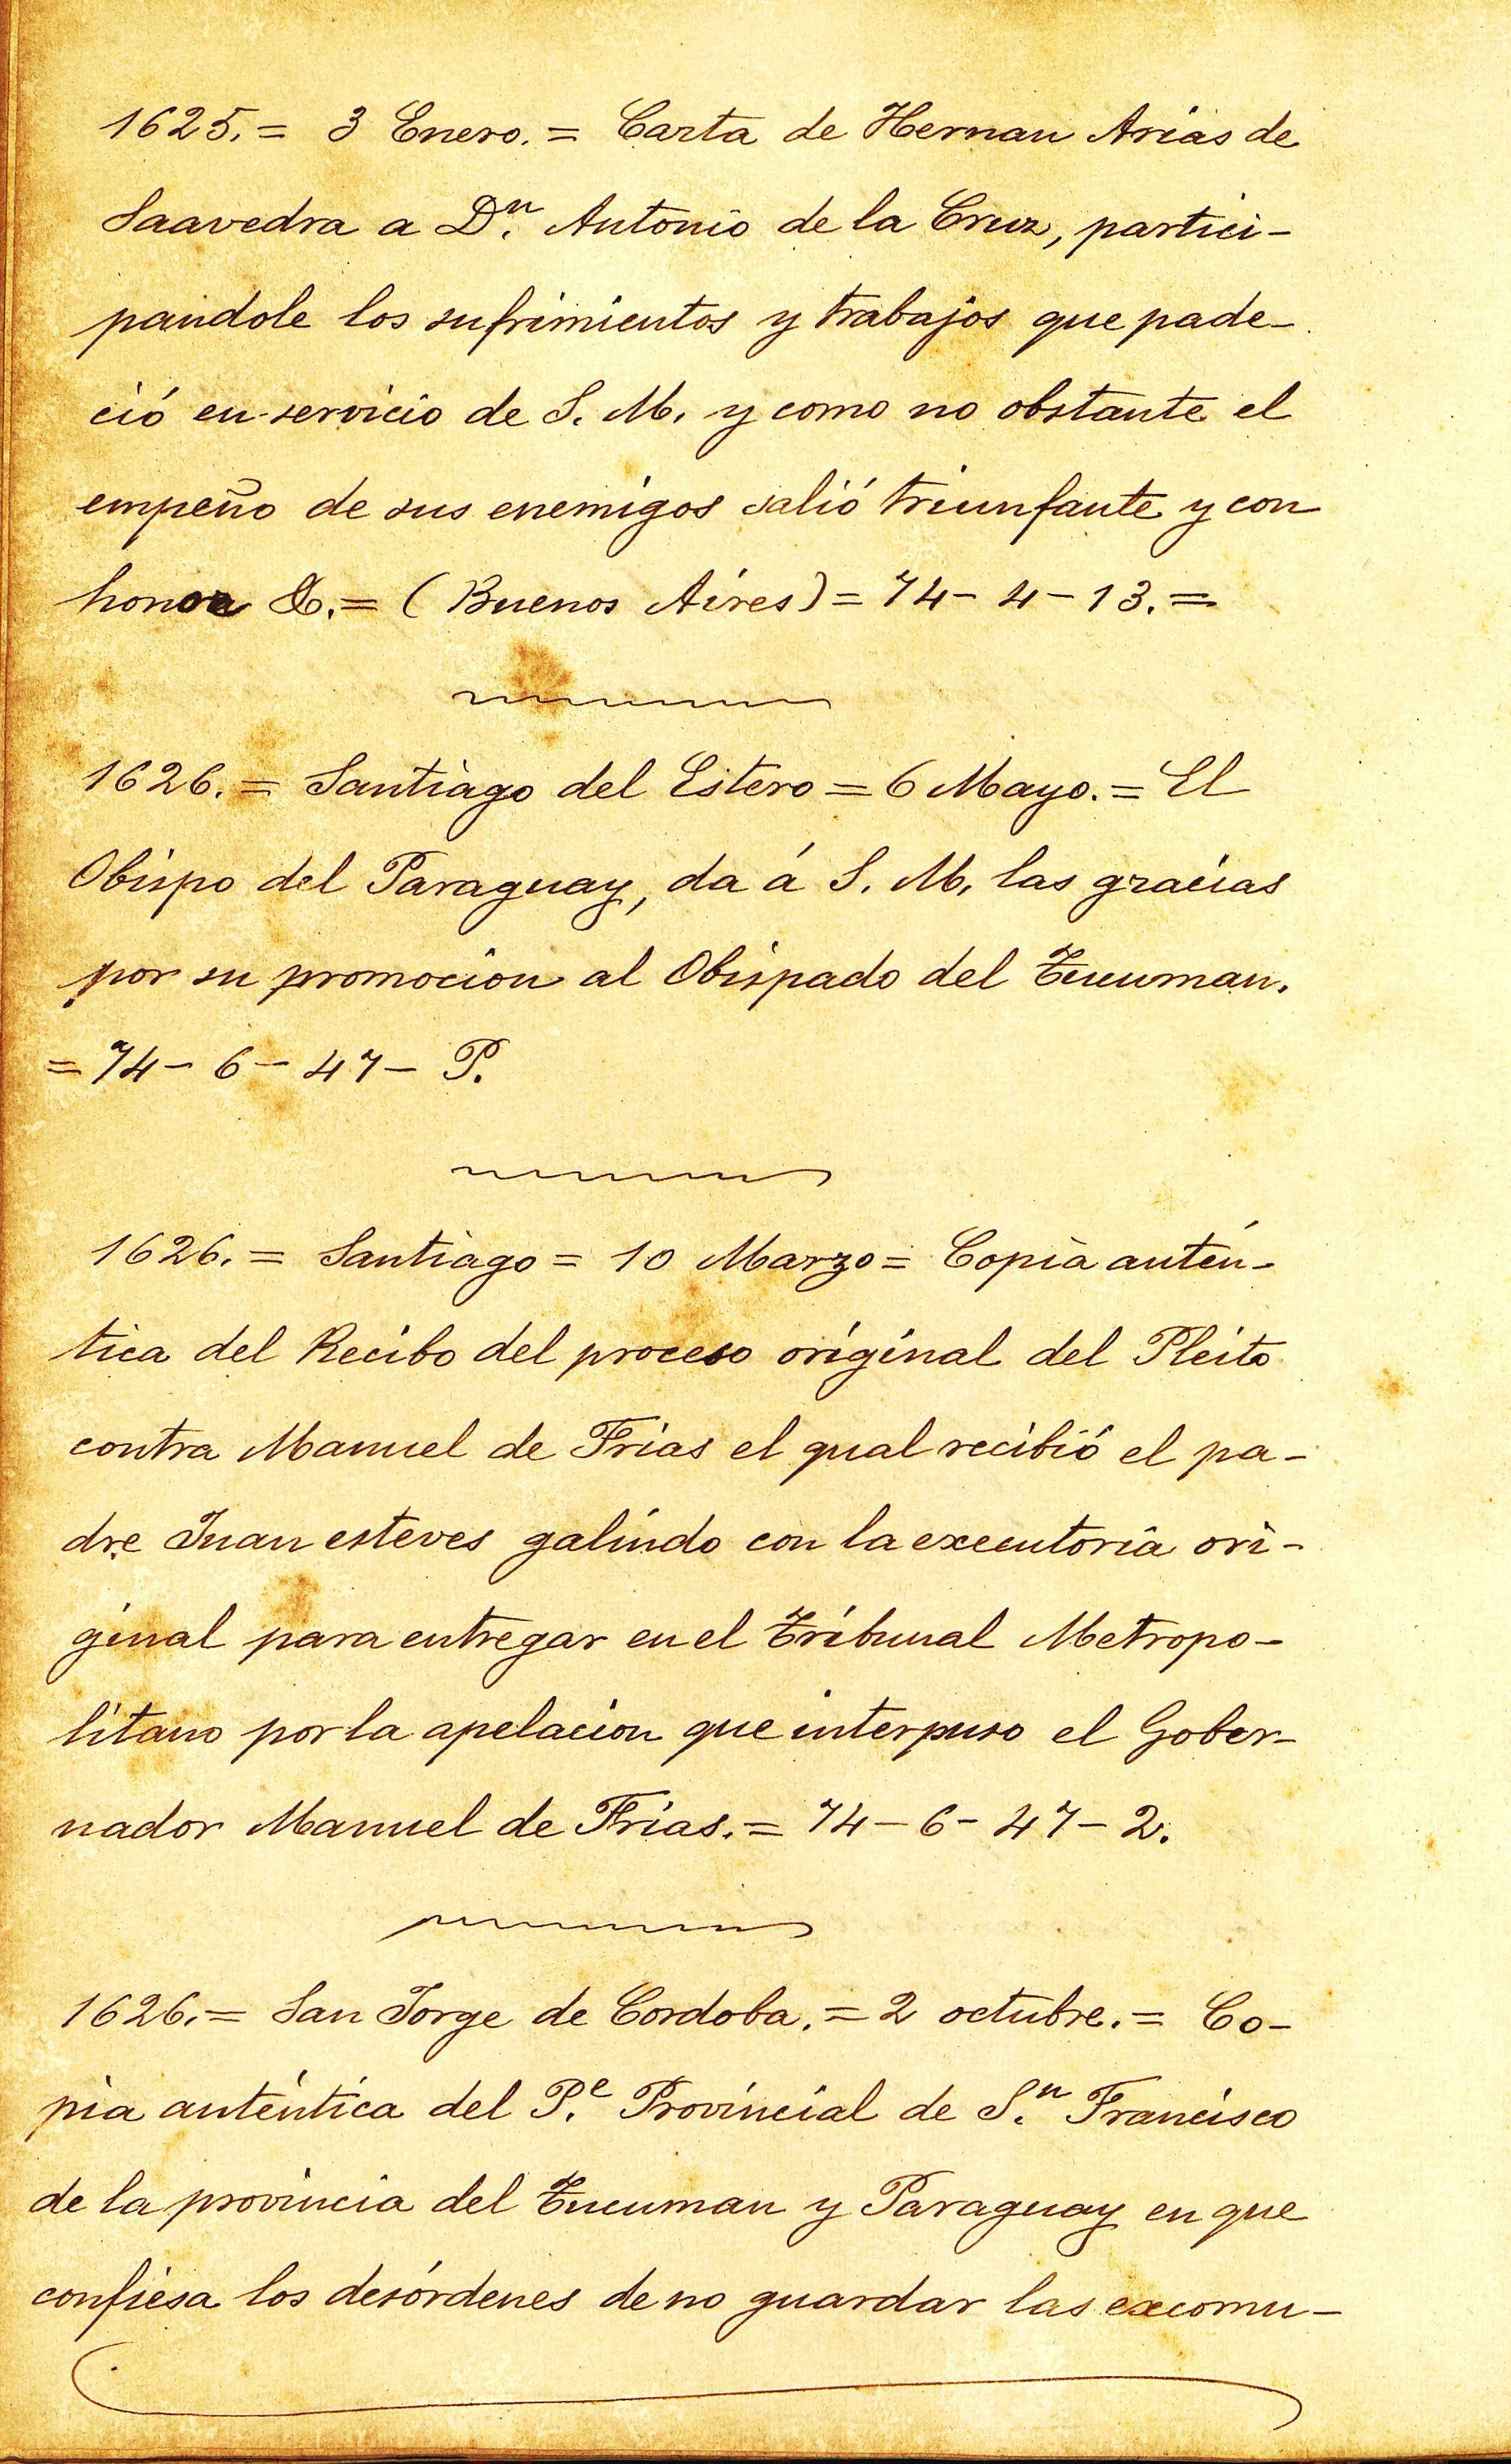 1625.= 3 Enero.= Carta de Hernan Arias de
Saavedra a D.ⁿ Antonio de la Cruz, partici-
pandole los sufrimientos y trabajos que pade-
ció en servicio de S. M. y como no obstante el
empeño de sus enemigos salió triunfante y con
honor &.= (Buenos Aires)= 74- 4- 13.=
1626.= Santiago del Estero = 6 Mayo.= El
Obispo del Paraguay, da á S. M. las gracias
por su promocion al Obispado del Tucuman.
= 74- 6- 47- P.
1626.= Santiago = 10 Marzo = Copia autén-
tica del Recibo del proceso original del Pleito
contra Manuel de Frias el qual recibió el pa-
dre Juan esteves galindo con la executoria ori-
ginal para entregar en el Tribunal Metropo-
litano por la apelacion que interpuso el Gober-
nador Manuel de Frias.= 74- 6- 47- 2.
1626.= San Jorge de Cordoba.= 2 octubre.= Co-
pia auténtica del P.ᵉ Provincial de S.ⁿ Francisco
de la provincia del Tucuman y Paraguay en que
confiesa los desórdenes de no guardar las excomu-